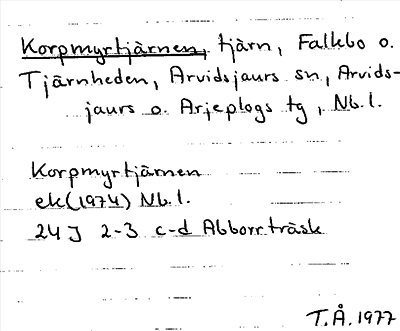 Korpmyrtjärnen, tjärn, Falkbo o.
Tjärnheden, Arvidsjaurs sn, Arvids-
jaurs o. Arjeplogs tg, Nb. l.
Korpmyrtjärnen
ek (1974) Nb. l.
24J 2-3 c-d Abborrträsk
T.Å. 1977